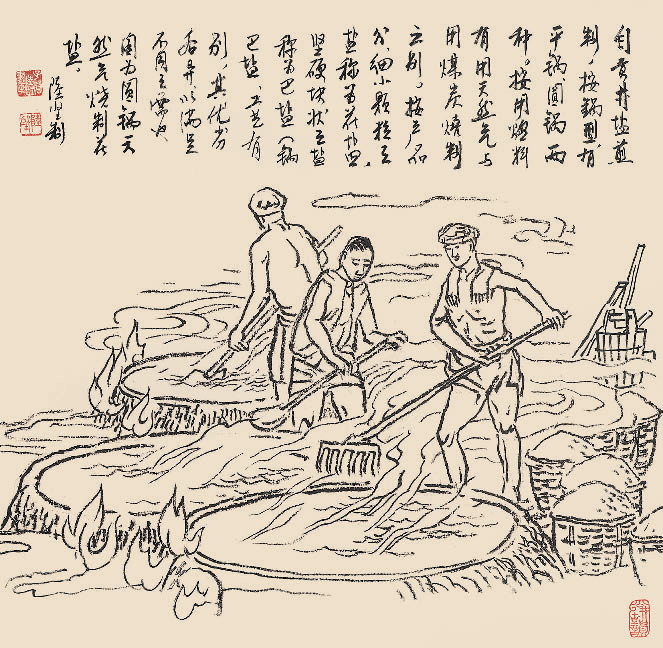 自贡井盐煎
制，按锅型有
平锅圆锅两
种。按用燃料
有用天然气与
用煤炭烧制
之别。按产品
分，细小颗粒之
盐称为花盐，
坚硬块状之盐
称为巴盐（锅
巴盐）。工艺有
别，其优劣
各异以满足
不同之需也
图为圆锅天
然气烧制花
盐。